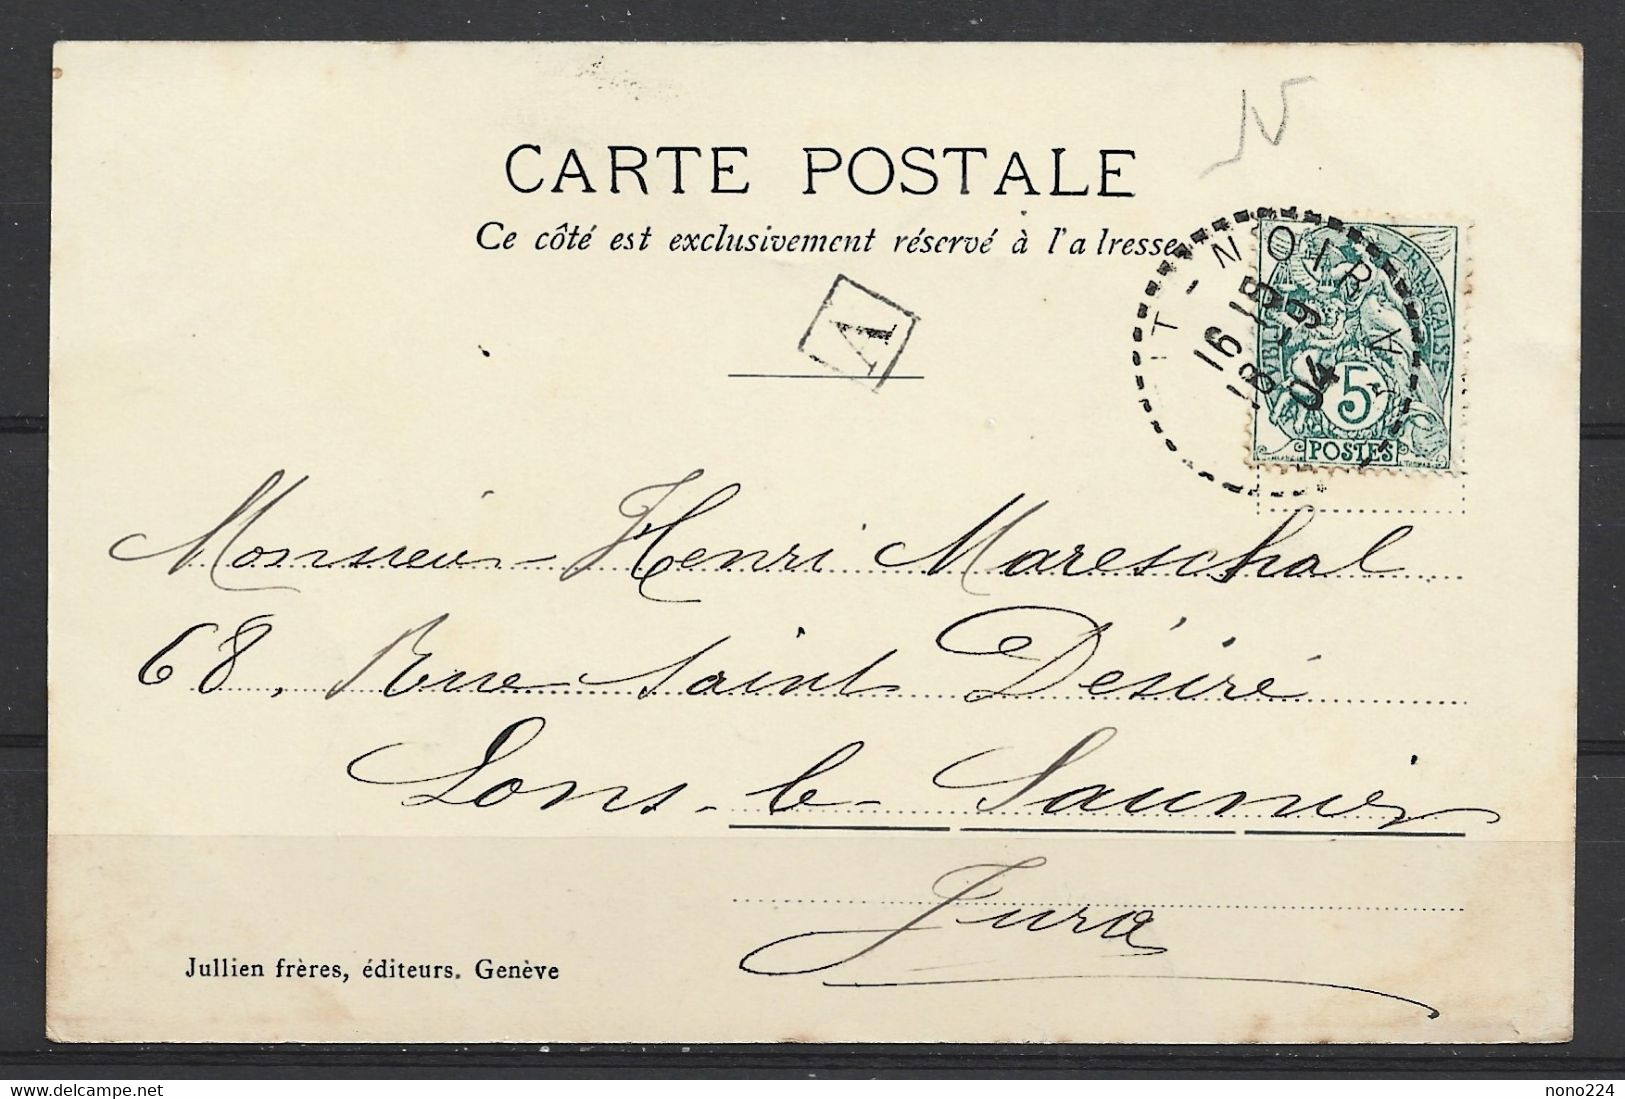 CARTE POSTALE
Ce côté est exclusivement réservé à l'a lresse
A
T - NOIR
16 15
18 -9
04
FRANÇAISE
5
POSTES
Monsieur Henri Mareschal
68, Rue Saint Désiré
Lons-le-Saunier
Jura
Jullien frères, éditeurs. Genève
delcampe.net
nono224